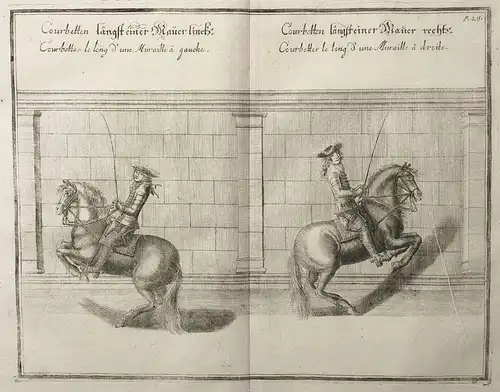 Courbetten längst einer Maüer linck's.
Courbetter le long d'une Muraille à gauche.
Courbetten längst einer Maüer rechts.
Courbetter le long d'une Muraille à droite.